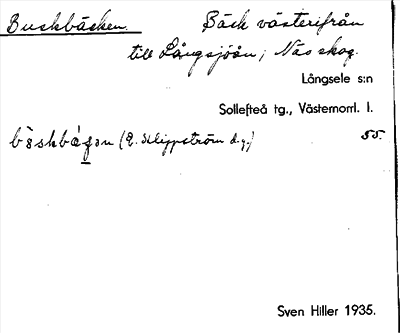 Buskbäcken. Bäck västerifrån
till Långsjöån; Näs skog.
Långsele s:n
Sollefteå tg., Västernorrl. l.
(E. Klippström d.y.) 55.
Sven Hiller 1935.